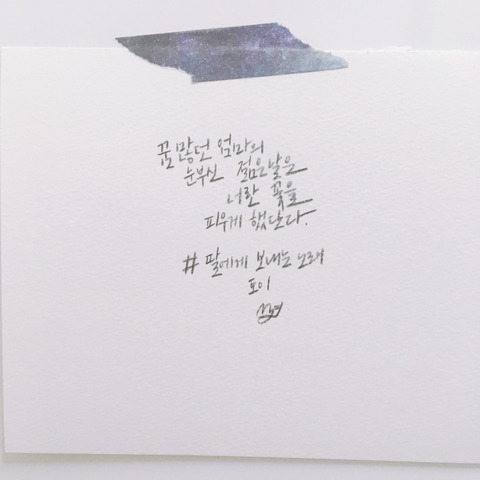 꿈 많던 엄마의
눈부신 젊은날은
너란 꽃을
피우게 했단다.
# 딸에게 보내는 노래
토이